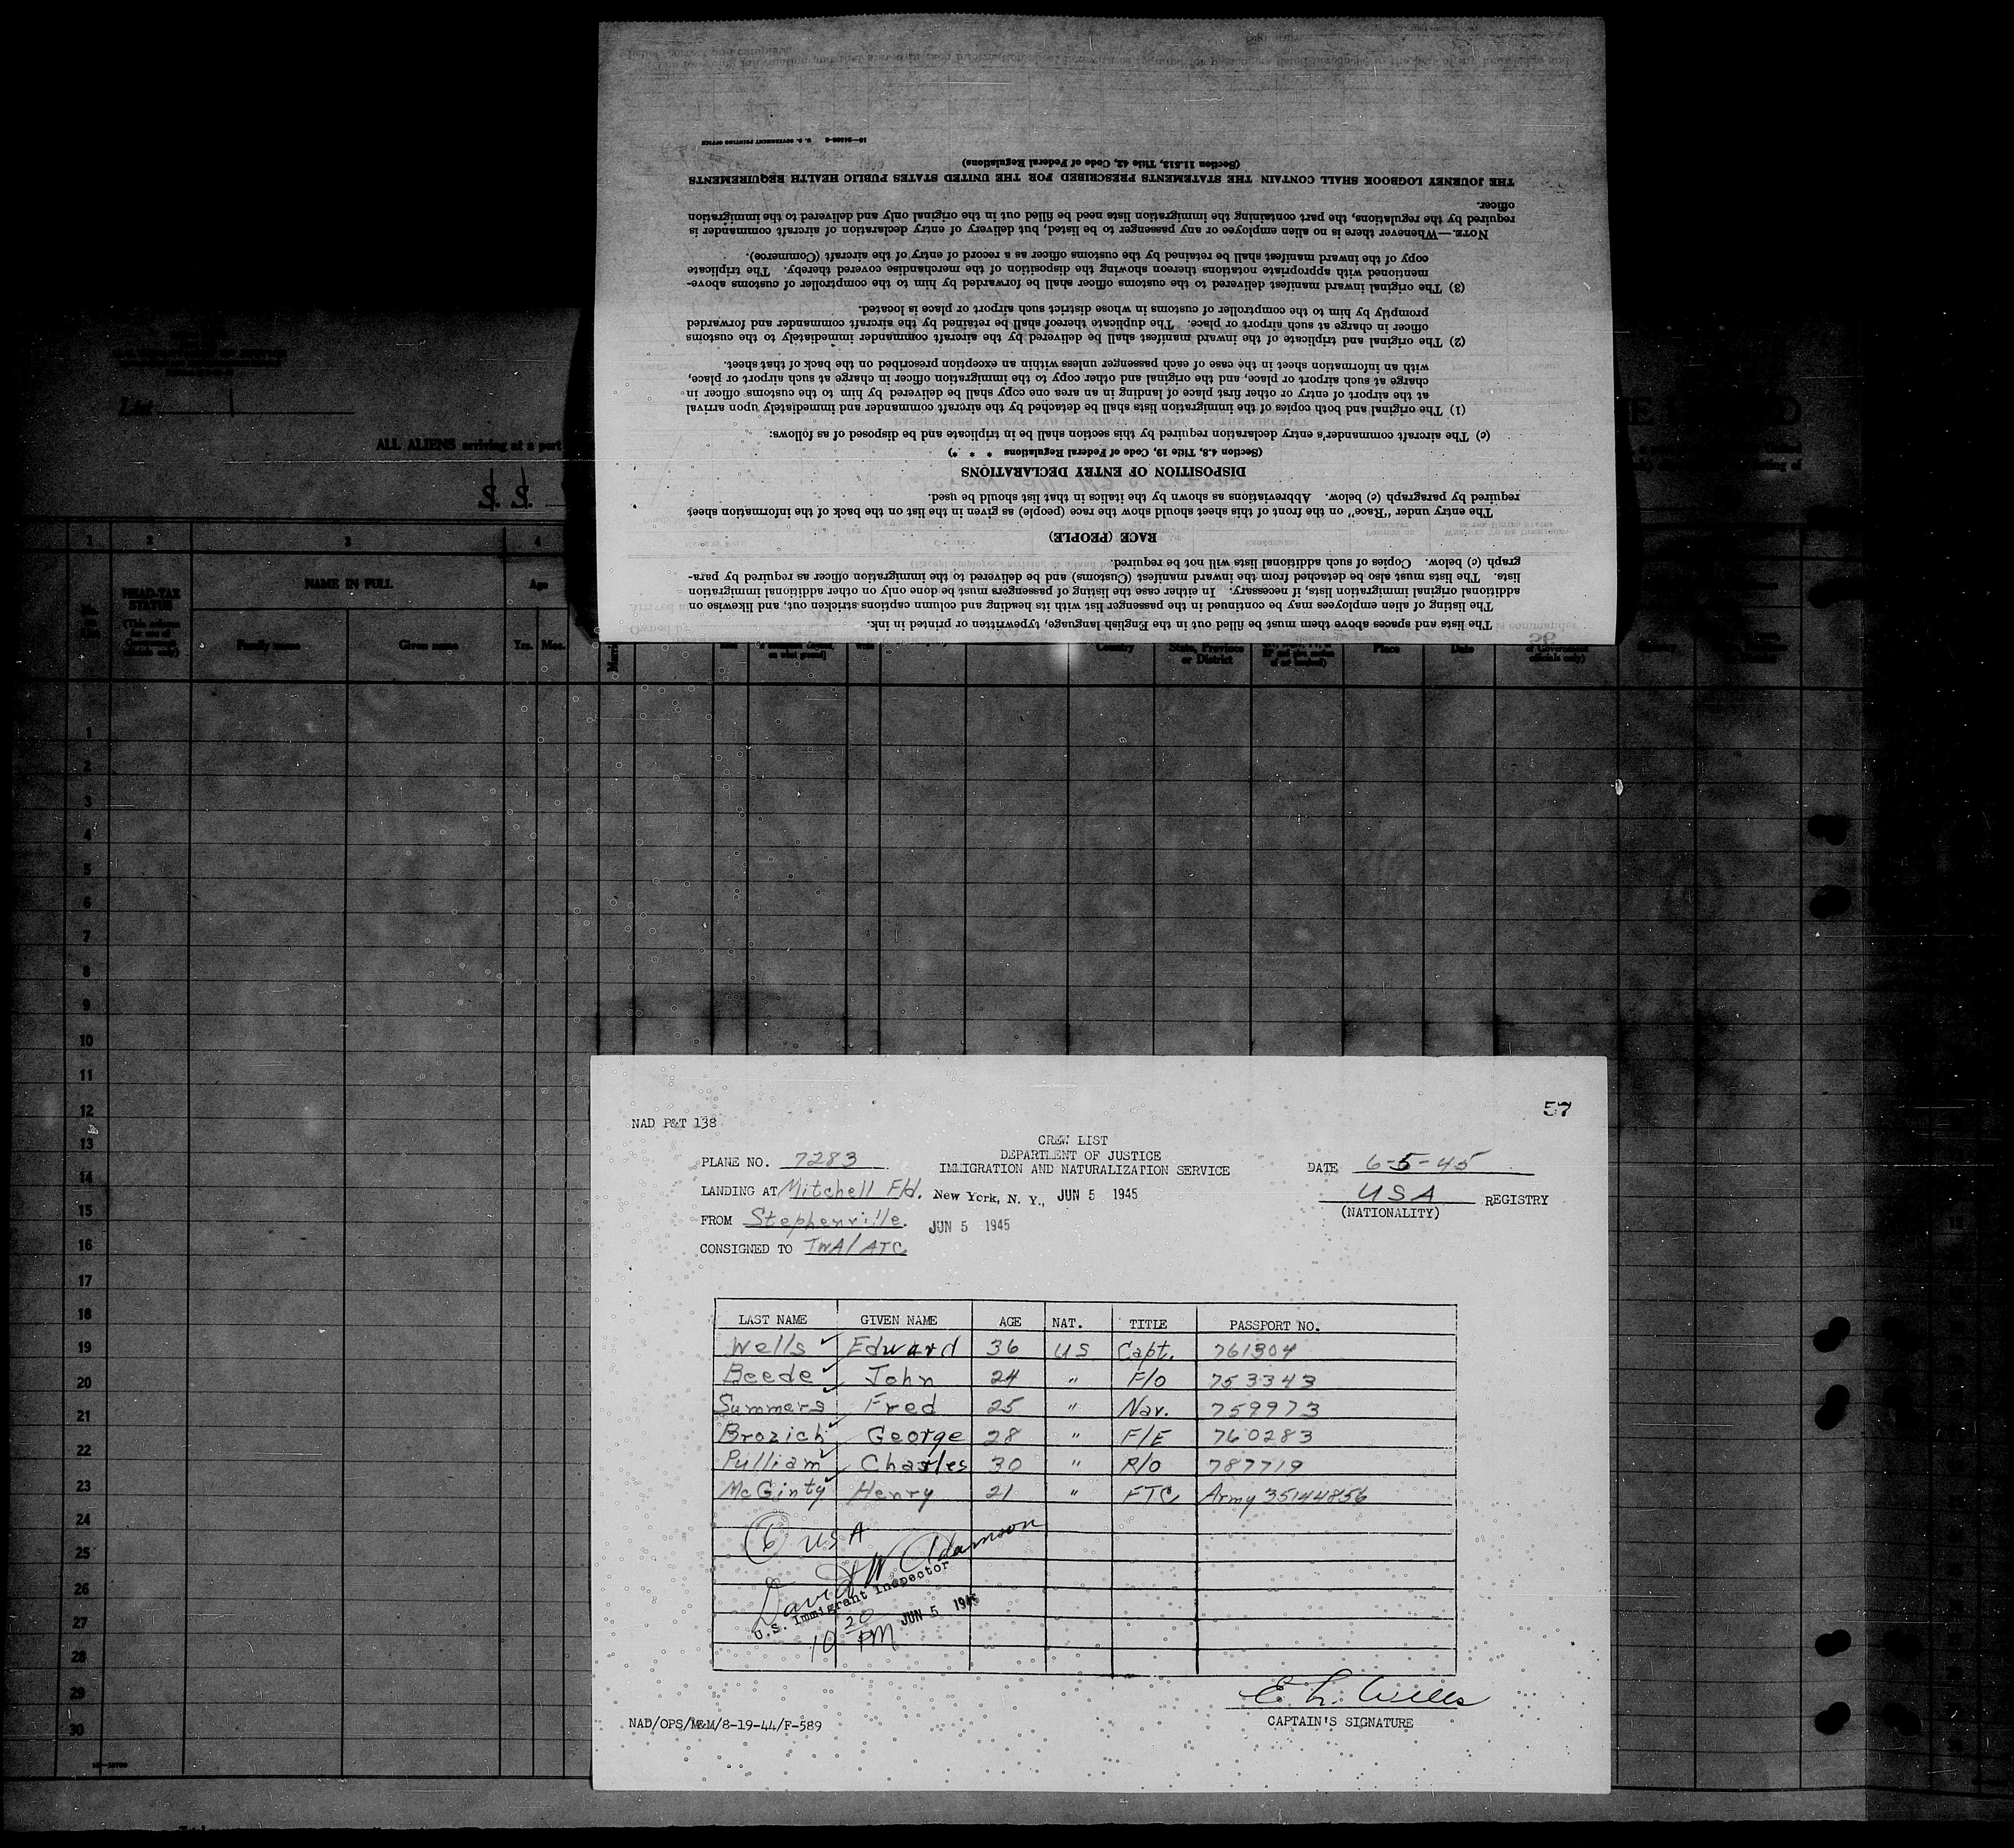 The lists and spaces above them must be filled out in the English language, typewritten or printed in ink.
The listing of alien employees may be continued in the passenger list with its heading and column captions stricken out, and likewise on
additional original immigration lists, if necessary. In either case the listing of passengers must be done only on other additional immigration
lists. The lists must also be detached from the inward manifest (Customs) and be delivered to the immigration officer as required by para-
graph (c) below. Copies of such additional lists will not be required.
RACE (PEOPLE)
The entry under "Race" on the front of this sheet should show the race (people) as given in the list on the back of the information sheet
required by paragraph (c) below. Abbreviations as shown by the italics in that list should be used.
DISPOSITION OF ENTRY DECLARATIONS
(Section 4.8, Title 19, Code of Federal Regulations * * *)
(c) The aircraft commander's entry declaration required by this section shall be in triplicate and be disposed of as follows:
(1) The original and both copies of the immigration lists shall be detached by the aircraft commander and immediately upon arrival
at the airport of entry or other first place of landing in an area one copy shall be delivered by him to the customs officer in
charge at such airport or place, and the original and other copy to the immigration officer in charge at such airport or place,
with an information sheet in the case of each passenger unless within an exception prescribed on the back of that sheet.
(2) The original and triplicate of the inward manifest shall be delivered by the aircraft commander immediately to the customs
officer in charge at such airport or place. The duplicate thereof shall be retained by the aircraft commander and forwarded
promptly by him to the comptroller of customs in whose district such airport or place is located.
(3) The original inward manifest delivered to the customs officer shall be forwarded by him to the comptroller of customs above-
mentioned with appropriate notations thereon showing the disposition of the merchandise covered thereby. The triplicate
copy of the inward manifest shall be retained by the customs officer as a record of entry of the aircraft (Commerce).
NOTE.—Whenever there is no alien employee or any passenger to be listed, but delivery of entry declaration of aircraft commander is
required by the regulations, the part containing the immigration lists need be filled out in the original only and delivered to the immigration
officer.
THE JOURNEY LOGBOOK SHALL CONTAIN THE STATEMENTS PRESCRIBED FOR THE UNITED STATES PUBLIC HEALTH REQUIREMENTS
(Section 11.513, Title 42, Code of Federal Regulations)
U. S. GOVERNMENT PRINTING OFFICE
List 1
ALL ALIENS arriving at a port
S. S.
1 2 3 4
HEAD-TAX STATUS NAME IN FULL Age
Family name Given name Yrs. Mos.
Country State, Province or District Place Date
1
2
3
4
5
6
7
8
9
10
11
12
13
14
15
16
17
18
19
20
21
22
23
24
25
26
27
28
29
30
57
NAD P&T 138
CREW LIST
DEPARTMENT OF JUSTICE
IMMIGRATION AND NATURALIZATION SERVICE
PLANE NO. 7283
DATE 6-5-45
LANDING AT Mitchell Fld. New York, N. Y., JUN 5 1945
USA REGISTRY
(NATIONALITY)
FROM Stephenville. JUN 5 1945
CONSIGNED TO TWA/ATC
LAST NAME GIVEN NAME AGE NAT. TITLE PASSPORT NO.
Wells Edward 36 US Capt. 761304
Beede John 24 " F/O 753343
Summers Fred 25 " Nav. 759973
Brozich George 28 " F/E 760283
Pulliam Charles 30 " R/O 787719
McGinty Henry 21 " FTC Army 35144856
6 USA
David W Adamson
U.S. Immigrant Inspector
JUN 5 1945
10 20 PM
E. L. Wells
CAPTAIN'S SIGNATURE
NAD/OPS/M&M/8-19-44/F-589